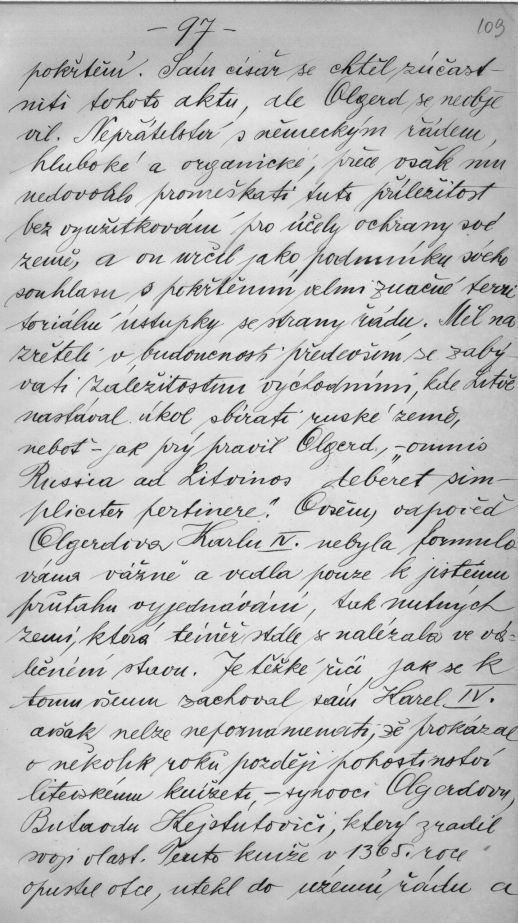 - 97 -
109
pokřtění. Sám císař se chtěl zúčast-
niti tohoto aktu, ale Olgerd se neobje
vil. Nepřátelství s německým řádem,
hluboké a organické, přece však mu
nedovolilo promeškati tuto příležitost
bez využitkování pro účely ochrany své
země, a on určil jako podmínku svého
souhlasu s pokřtěním velmi značné terri
toriální ústupky se strany řádu. Měl na
zřeteli v budoucnosti především se zabý-
vati záležitostmi východními, kde Litvě
nastával úkol sbírati ruské země,
neboť - jak prý pravil Olgerd, - „omnis
Russia ad Litvinos deberet sim-
pliciter pertinere". Ovšem, odpověď
Olgerdova Karlu IV. nebyla formulo
vána vážně a vedla pouze k jistému
průtahu vyjednávání, tak nutných
zemi, která téměř stále se nalézala ve vá-
lečném stavu. Je těžké říci, jak se k
tomu všemu zachoval sám Karel IV.
avšak nelze nepoznamenati, že prokázal
o několik roků později pohostinství
litevskému knížeti, - synovci Olgerdovu,
Butaodu Kejstutoviči, který zradil
svoji vlast. Tento kníže v 1365. roce
opustil otce, utekl do území řádu a